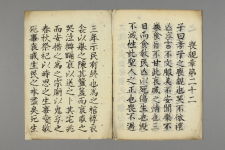 喪親章第二十二
子曰孝子之喪親也哭不依禮
亡容言不文服美不安聞樂不
樂食旨不甘此哀戚之情也三
日而食教民亡以死傷生也毀
不滅性此聖人之正也喪不過
三年示民有終也為之棺槨衣
衾以舉之陳其簠簋而哀戚之
哭泣擗踊哀以送之卜其宅兆
而安措之為之宗廟以鬼享之
春秋祭祀以時思之生事愛敬
死事哀戚生民之本盡矣死生